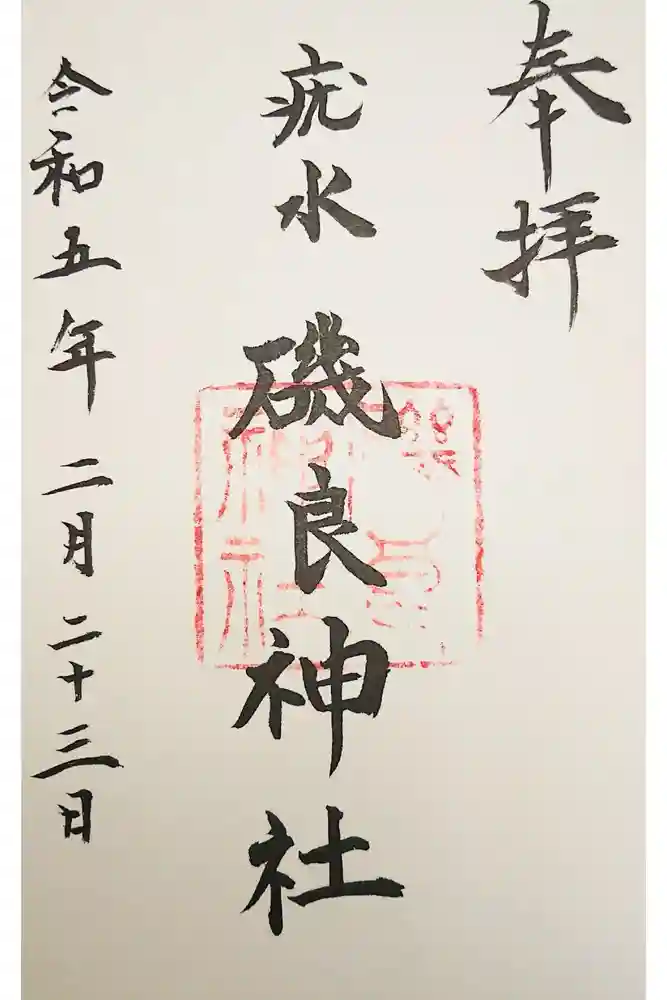 奉拝
疣水 磯良神社
令和五年二月二十三日